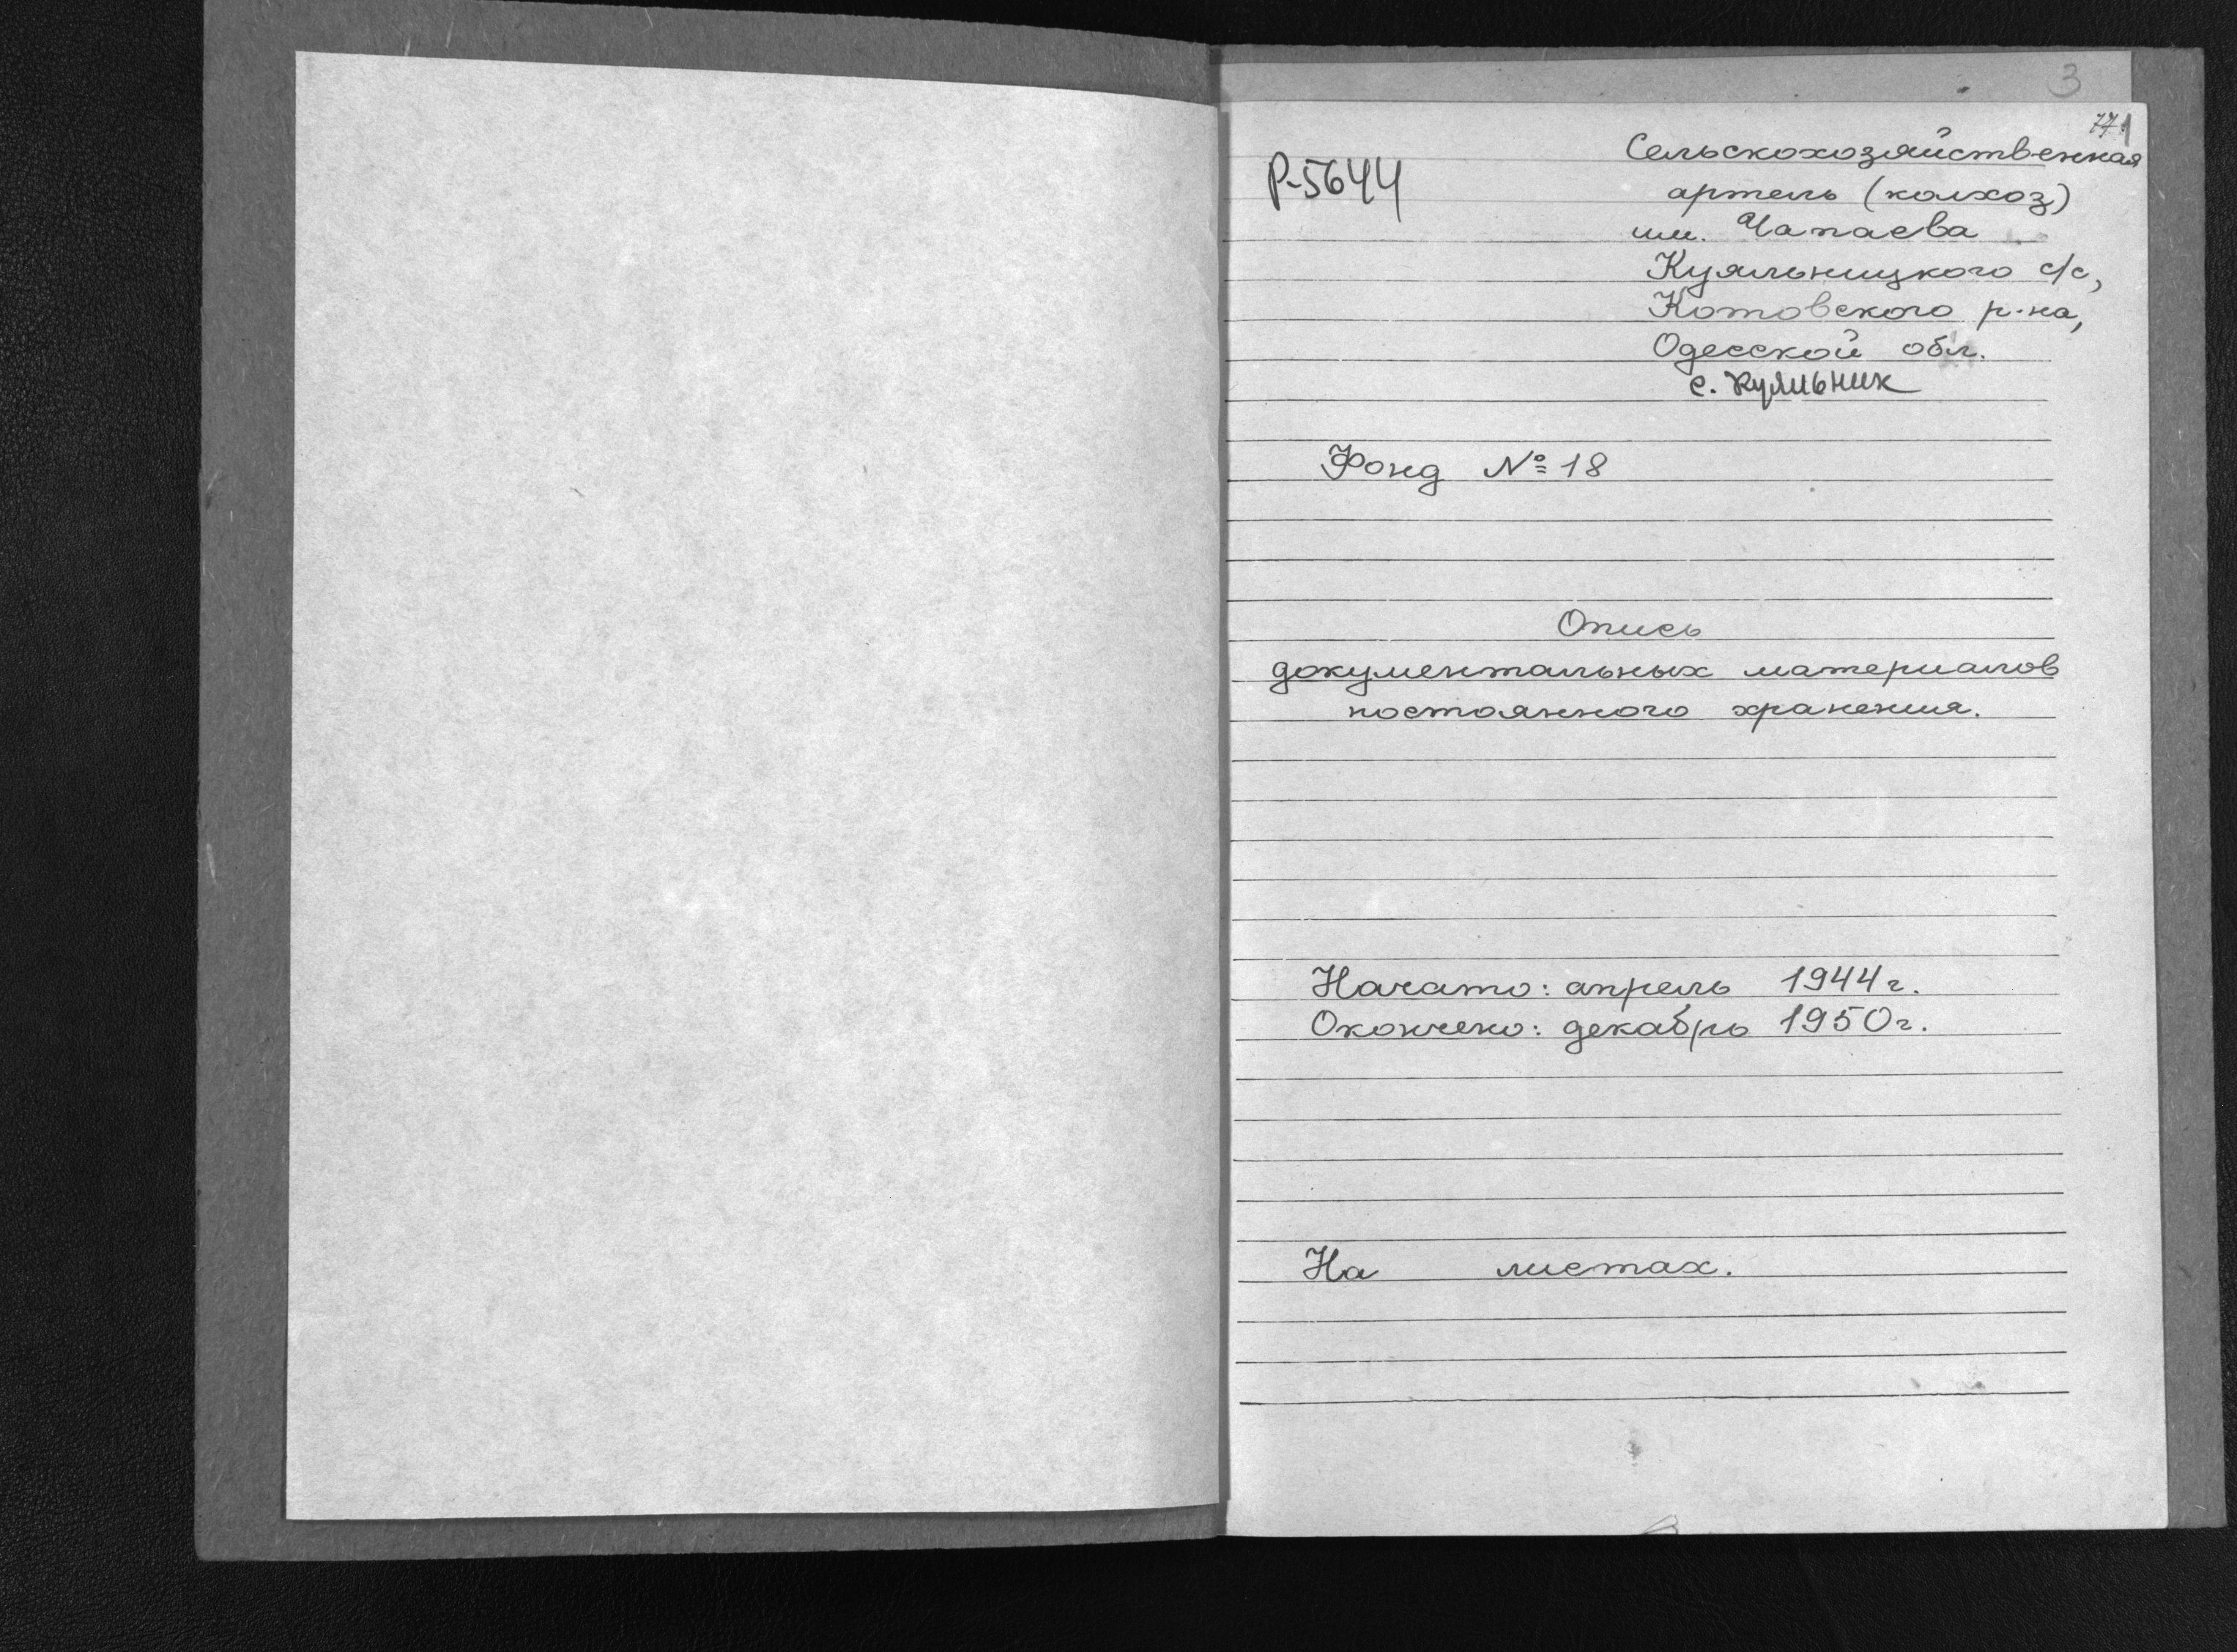 3
1
Р-5644
Сельскохозяйственная
артель (колхоз)
им. Чапаева
Куяльницкого с/с,
Котовского р-на,
Одесской обл.
с. Куяльник
Фонд № 18
Опись
документальных материалов
постоянного хранения.
Начато: апрель 1944 г.
Окончено: декабрь 1950 г.
На листах.